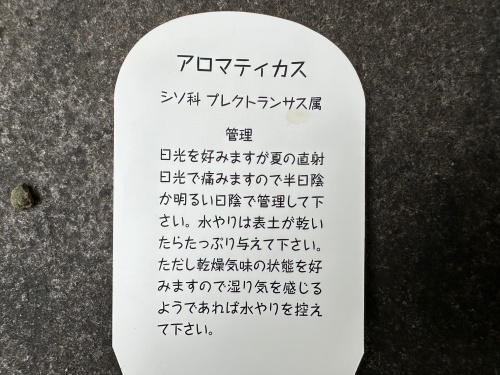 アロマティカス
シソ科 プレクトランサス属
管理
日光を好みますが夏の直射
日光で痛みますので半日陰
か明るい日陰で管理して下
さい。水やりは表土が乾い
たらたっぷり与えて下さい。
ただし乾燥気味の状態を好
みますので湿り気を感じる
ようであれば水やりを控え
て下さい。